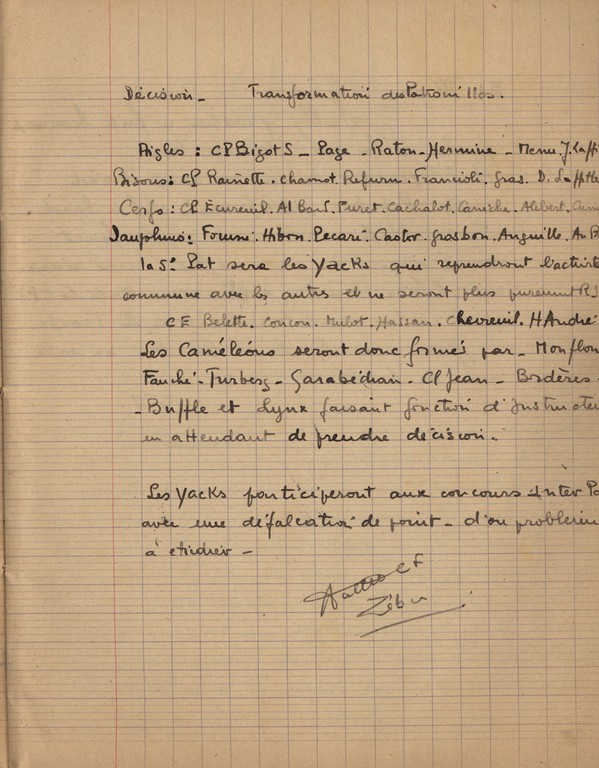 Décision - Transformation des Patrouilles.
Aigles : CP Bigot S - Page - Raton - Hermine - Menu J. Laffi
Bisons : CP Rainette. Chamot. Refurn. Francioli. Gras. D. Laffitte
Cerfs : CP Écureuil. Al Bard. Furet. Cachalot. Caniche. Alibert.
Dauphins : Fourmi. Hibou. Pecari. Castor. Grasbon. Anguille. An
la 5e Pat sera les Yacks qui reprendront l'activité
commune avec les autres et ne seront plus purement R
CE Belette. Concon. Mulot. Hassan. Chevreuil. H André
Les Caméléons seront donc formés par - Mouflon
Fauché - Turberg - Garabédian - CP Jean - Bordères
- Buffle et Lynx faisant fonction d'Instructe
en attendant de prendre décision.
Les Yacks participeront aux concours Inter Pa
avec une défalcation de point - d'où problème
à étudier -
CF
Zébu